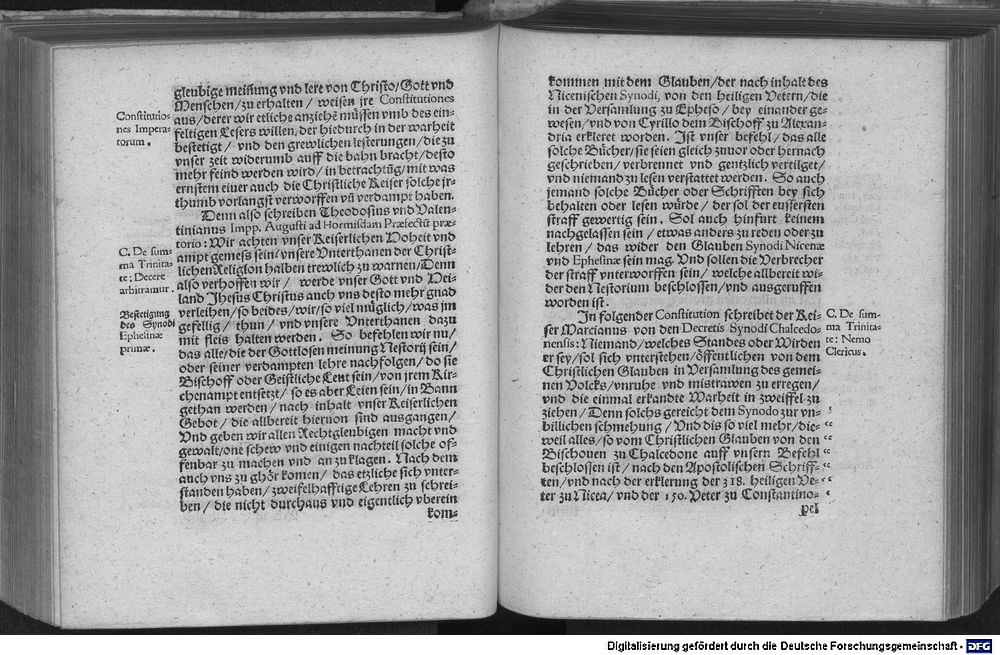 gleubige meinung vnd lere von Christo/Gott vnd
Menschen/zu erhalten / weisen jre Constitutiones
aus/derer wir etliche anziehē müssen vmb des ein-
feltigen Lesers willen, der hiedurch in der warheit
bestetigt/ vnd den grewlichen lesterungen/die zu
vnser zeit widerumb auff die bahn bracht/desto
mehr feind werden wird/in betrachtūg/mit was
ernstem eiuer auch die Christliche Keiser solche jr-
thumb vorlangst verworffen vñ verdampt haben.
Denn also schreiben Theodosius vnd Valen-
tinianus Impp. Augusti ad Hormisdam Præfectū præ-
torio: Wir achten vnser Keiserlichen Hoheit vnd
ampt gemess sein/vnsere Vnterthanen der Christ-
lichen Religion halben trewlich zu warnen/Denn
also verhoffen wir / werde vnser Gott vnd Hei-
land Jhesus Christus auch vns desto mehr gnad
verleihen/so beides/wir/so viel müglich/was jm
gefellig / thun / vnd vnsere Vnterthanen dazu
mit fleis halten werden. So befehlen wir nu/
das alle/die der Gottlosen meinung Nestorij sein/
oder seiner verdampten lehre nachfolgen/do sie
Bischoff oder Geistliche Leut sein/von jrem Kir-
chenampt entsetzt/so es aber Leien sein/in Bann
gethan werden/nach inhalt vnser Keiserlichen
Gebot / die allbereit hieruon sind ausgangen/
Vnd geben wir allen Rechtgleubigen macht vnd
gewalt/one schew vnd einigen nachteil solche of-
fenbar zu machen vnd an zu klagen. Nach dem
auch vns zu ghör komen/das etzliche sich vnter-
standen haben/zweifelhafftige Lehren zu schrei-
ben/die nicht durchaus vnd eigentlich vberein
kom-
Constitutio-
nes Impera-
torum.
C. De sum-
ma Trinita-
te: Decere
arbitramur.
Bestetigung
des Synodi
Ephesinæ
primæ.
kommen mit dem Glauben/der nach inhalt des
Nicenischen Synodi, von den heiligen Vetern/die
in der Versamlung zu Epheso/bey einander ge-
wesen/vnd von Cyrillo dem Bischoff zu Alexan-
dria erkleret worden. Ist vnser befehl/das alle
solche Bücher/sie seien gleich zuuor oder hernach
geschrieben/verbrennet vnd gentzlich vertilget/
vnd niemand zu lesen verstattet werden. So auch
jemand solche Bücher oder Schrifften bey sich
behalten oder lesen würde/der sol der eussersten
straff gewertig sein. Sol auch hinfurt keinem
nachgelassen sein/etwas anders zu reden oder zu
lehren/das wider den Glauben Synodi Nicenæ
vnd Ephesinæ sein mag. Vnd sollen die Verbrecher
der straff vnterworffen sein/welche allbereit wi-
der den Nestorium beschlossen/vnd ausgeruffen
worden ist.
In folgender Constitution schreibet der Kei-
ser Marcianus von den Decretis Synodi Chalcedo-
nensis: Niemand/welches Standes oder Wirden
er sey/sol sich vnterstehen/öffentlichen von dem
Christlichen Glauben in Versamlung des gemei-
nen Volcks/vnruhe vnd mistrawen zu erregen/
vnd die einmal erkandte Warheit in zweiffel zu
ziehen/Denn solchs gereicht dem Synodo zur vn-
billichen schmehung/Vnd dis so viel mehr/die-
weil alles/so vom Christlichen Glauben von den
Bischouen zu Chalcedone auff vnsern Befehl
beschlossen ist/nach den Apostolischen Schriff-
ten/vnd nach der erklerung der 318. heiligen Ve-
ter zu Nicea/vnd der 150. Veter zu Constantino-
pel
C. De sum-
ma Trinita-
te: Nemo
Clericus.
Digitalisierung gefördert durch die Deutsche Forschungsgemeinschaft - DFG